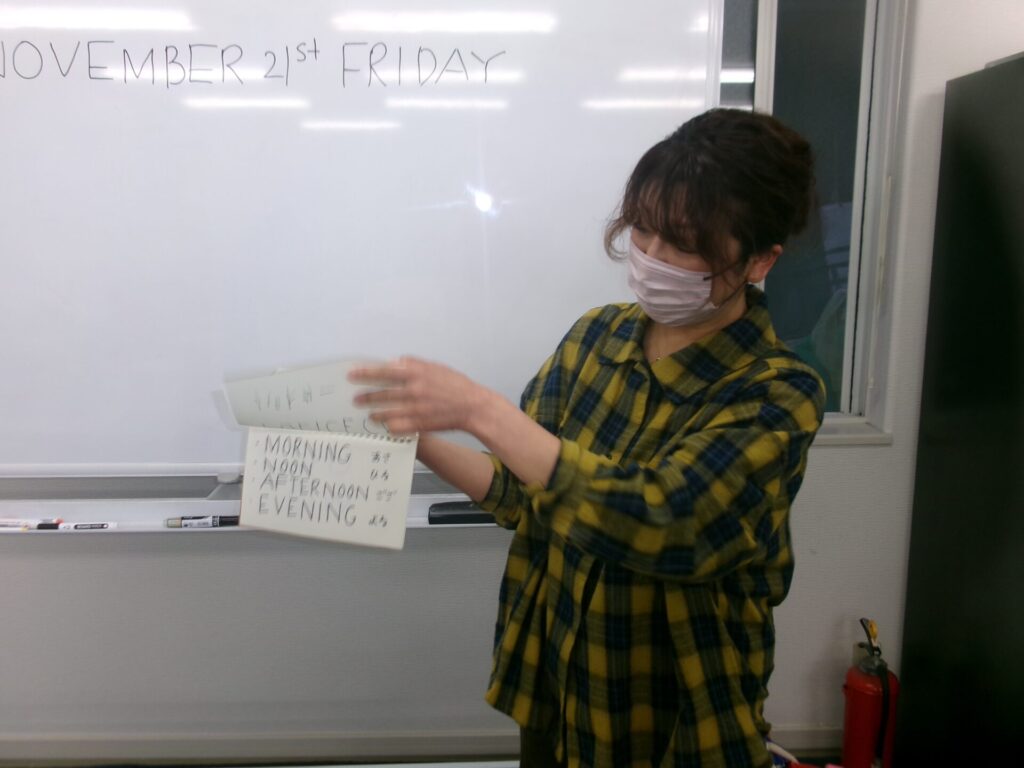 NOVEMBER 21st FRIDAY
MORNING あさ
NOON ひる
AFTERNOON ごご
EVENING よる